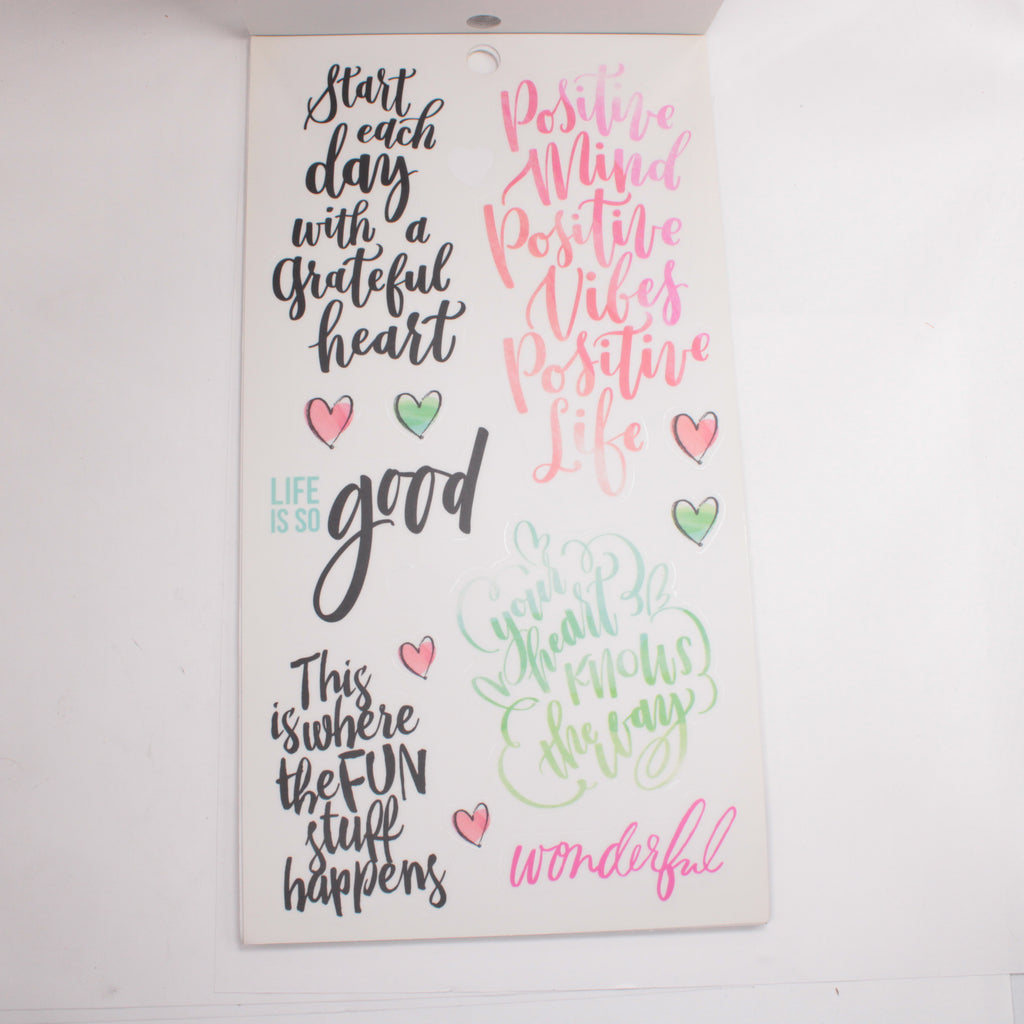 Start
each
day
with a
grateful
heart
Positive
Mind
Positive
Vibes
Positive
Life
LIFE
IS SO
good
your
heart
KNOWS
the way
This
is where
the FUN
stuff
happens
wonderful